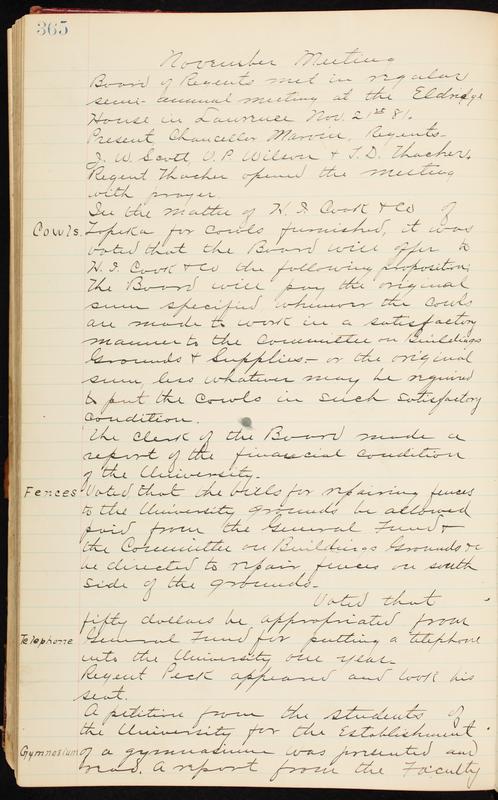 365
November Meeting
Board of Regents met in regular
semi-annual meeting at the Eldridge
House in Lawrence Nov. 21st 81.
Present Chancellor Marvin, Regents-
J. W. Scott, V. P. Wilson & T. D. Thacher.
Regent Thacher opened the meeting
with prayer.
In the matter of H. I. Cook & Co of
Cowls. Topeka for cowls furnished, it was
voted that the Board will offer to
H. I. Cook & Co the following proposition;
The Board will pay the original
sum specified whenever the cowls
are made to work in a satisfactory
manner to the Committee on Buildings
Grounds & Supplies- or the original
sum, less whatever may be required
to put the cowls in such satisfactory
condition.
The clerk of the Board made a
report of the financial condition
of the University.
Fences Voted that the bills for repairing fences
to the University grounds be allowed
paid from the General Fund &
the Committee on Buildings Grounds &c
be directed to repair fences on south
side of the grounds.
Voted that
fifty dollars be appropriated from
Telephone General Fund for putting a telephone
into the University one year.
Regent Peck appeared and took his
seat.
A petition from the students of
the University for the Establishment
Gymnasium of a gymnasium was presented and
read. A report from the Faculty